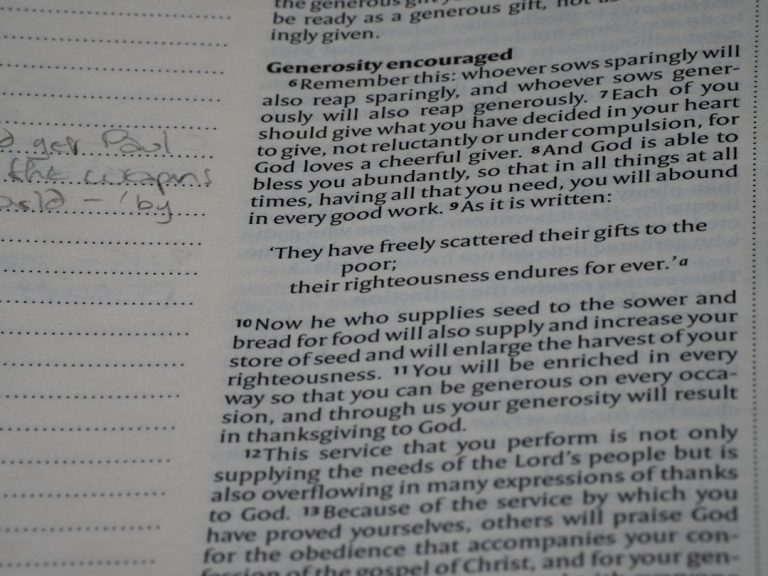 the generous gift
be ready as a generous gift, not as
ingly given.
Generosity encouraged
6 Remember this: whoever sows sparingly will
also reap sparingly, and whoever sows gener-
ously will also reap generously. 7 Each of you
should give what you have decided in your heart
to give, not reluctantly or under compulsion, for
God loves a cheerful giver. 8 And God is able to
bless you abundantly, so that in all things at all
times, having all that you need, you will abound
in every good work. 9 As it is written:
‘They have freely scattered their gifts to the
poor;
their righteousness endures for ever.’ a
10 Now he who supplies seed to the sower and
bread for food will also supply and increase your
store of seed and will enlarge the harvest of your
righteousness. 11 You will be enriched in every
way so that you can be generous on every occa-
sion, and through us your generosity will result
in thanksgiving to God.
12 This service that you perform is not only
supplying the needs of the Lord’s people but is
also overflowing in many expressions of thanks
to God. 13 Because of the service by which you
have proved yourselves, others will praise God
for the obedience that accompanies your con-
fession of the gospel of Christ, and for your gen-
Paul
the weapons
– ‘by